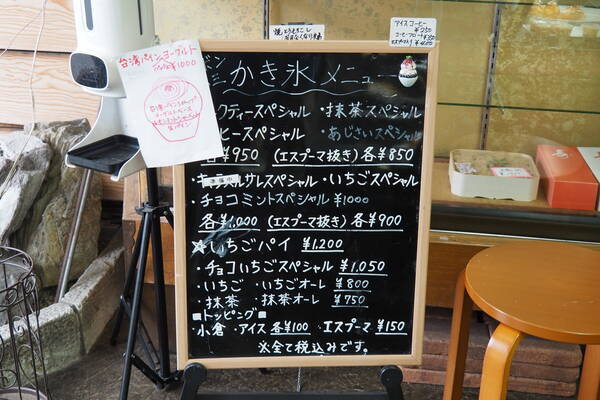 焼とうもろこし
アイスコーヒー
台湾パインヨーグルト
¥1000
かき氷メニュー
クティースペシャル ・抹茶スペシャル
ヒースペシャル ・あじさいスペシャル
各¥950 (エスプーマ抜き)各¥850
スペシャル ・いちごスペシャル
・チョコミントスペシャル ¥1000
各¥1,000 (エスプーマ抜き)各¥900
☆いちごパイ ¥1,200
・チョコいちごスペシャル ¥1,050
・いちご ・いちごオーレ ¥800
・抹茶 ・抹茶オーレ ¥750
■トッピング■
・小倉 ・アイス 各¥100 ・エスプーマ ¥150
※全て税込みです。